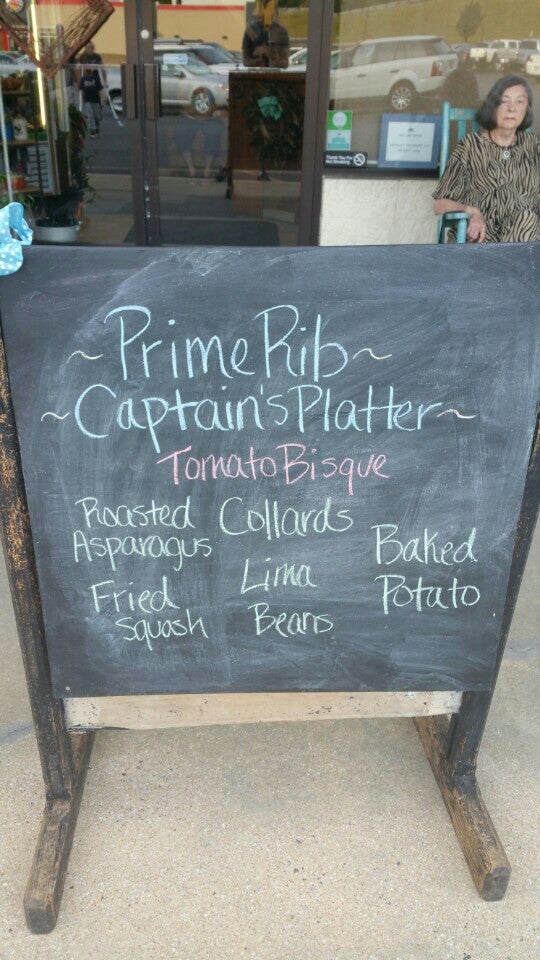 ~Prime Rib~
~Captain's Platter~
Tomato Bisque
Roasted
Asparagus
Fried
squash
Collards
Lima
Beans
Baked
Potato
Thank You For
Not Smoking